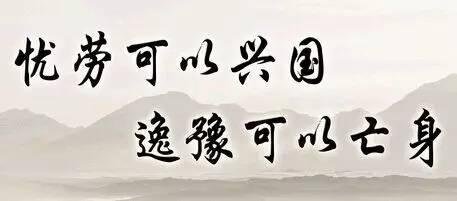 忧劳可以兴国
逸豫可以亡身